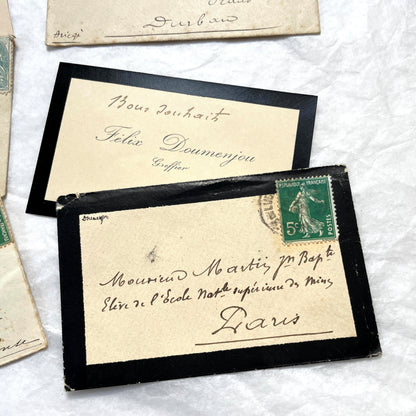 Durban
Ariège
Bons souhaits
Félix Doumenjou
Greffier
RÉPUBLIQUE FRANÇAISE
5c
POSTES
Monsieur Martin Jn Bapte
Elève de l'École Natle supérieure des Mines
Paris